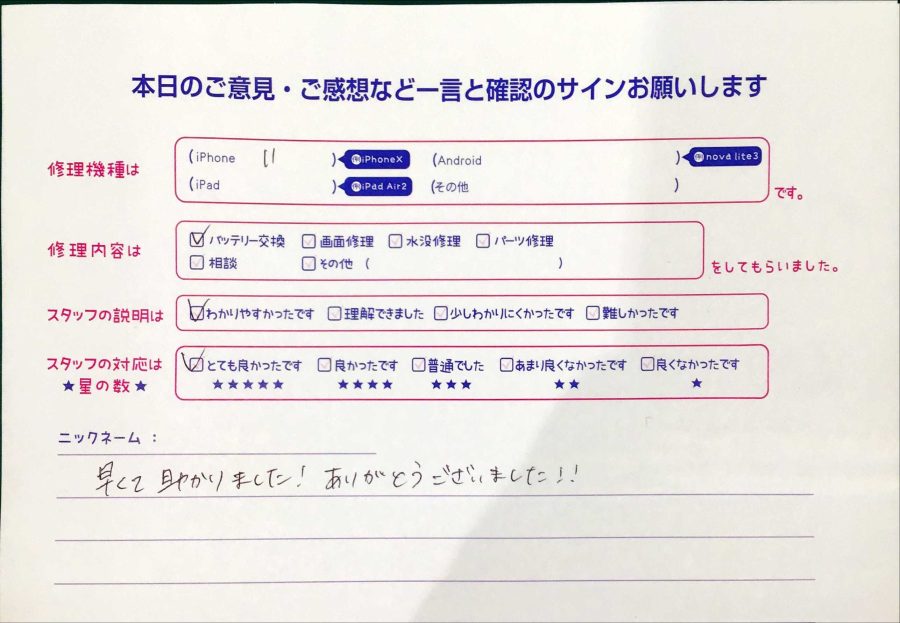 本日のご意見・ご感想など一言と確認のサインお願いします
修理機種は (iPhone 11 ) 例)iPhoneX (Android ) 例)nova lite3
(iPad ) 例)iPad Air2 (その他 ) です。
修理内容は バッテリー交換 画面修理 水没修理 パーツ修理
相談 その他 ( ) をしてもらいました。
スタッフの説明は わかりやすかったです 理解できました 少しわかりにくかったです 難しかったです
スタッフの対応は とても良かったです 良かったです 普通でした あまり良くなかったです 良くなかったです
★星の数★ ★★★★★ ★★★★ ★★★ ★★ ★
ニックネーム :
早くて助かりました! ありがとうございました!!